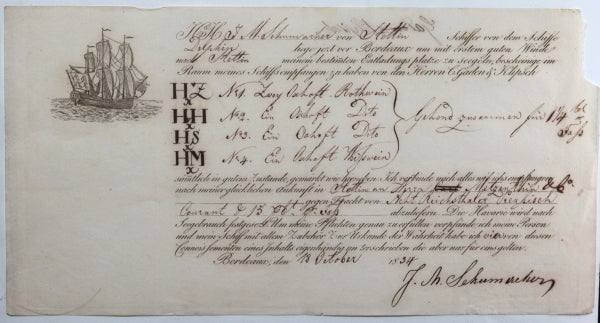 Ich J M Schumacher von Stettin Schiffer von dem Schiffe
Delphin liege jezt vor Bordeaux um mit erstem guten Winde
nach Stettin meinem bestimten Entladungs platze zu seegeln, bescheinige im
Raum meines Schifs empfangen zu haben von den Herren & Klipsch
HZ No 1. Zwey Oxhoft Rothwein
HH No 2. Ein Oxhoft Dito
HS No 3. Ein Oxhoft Dito
HM No 4. Ein Oxhoft Weiswein
x
Gehend zusammen für 1 1/4
sämtlich in gutem Zustande, gemarkt wie hierneben. Ich verbinde mich alles was ich empfangen
nach meiner glücklichen Ankunft in Stettin an Herrn
gegen Fracht von Acht Reichsthaler Preusisch
Courant & 15 abzuliefern. Die Havarie wird nach
Seegebrauch festgesezt. Um meine Pflichten genau zu erfüllen verpfände ich meine Person
und mein Schif mit allem Zubehör. Zur Urkunde der Wahrheit habe ich vier von diesen
Connossementen eines Inhalts eigenhändig unterschrieben die aber nur für eins gelten.
Bordeaux, den 18 October 1834
J. M. Schumacher